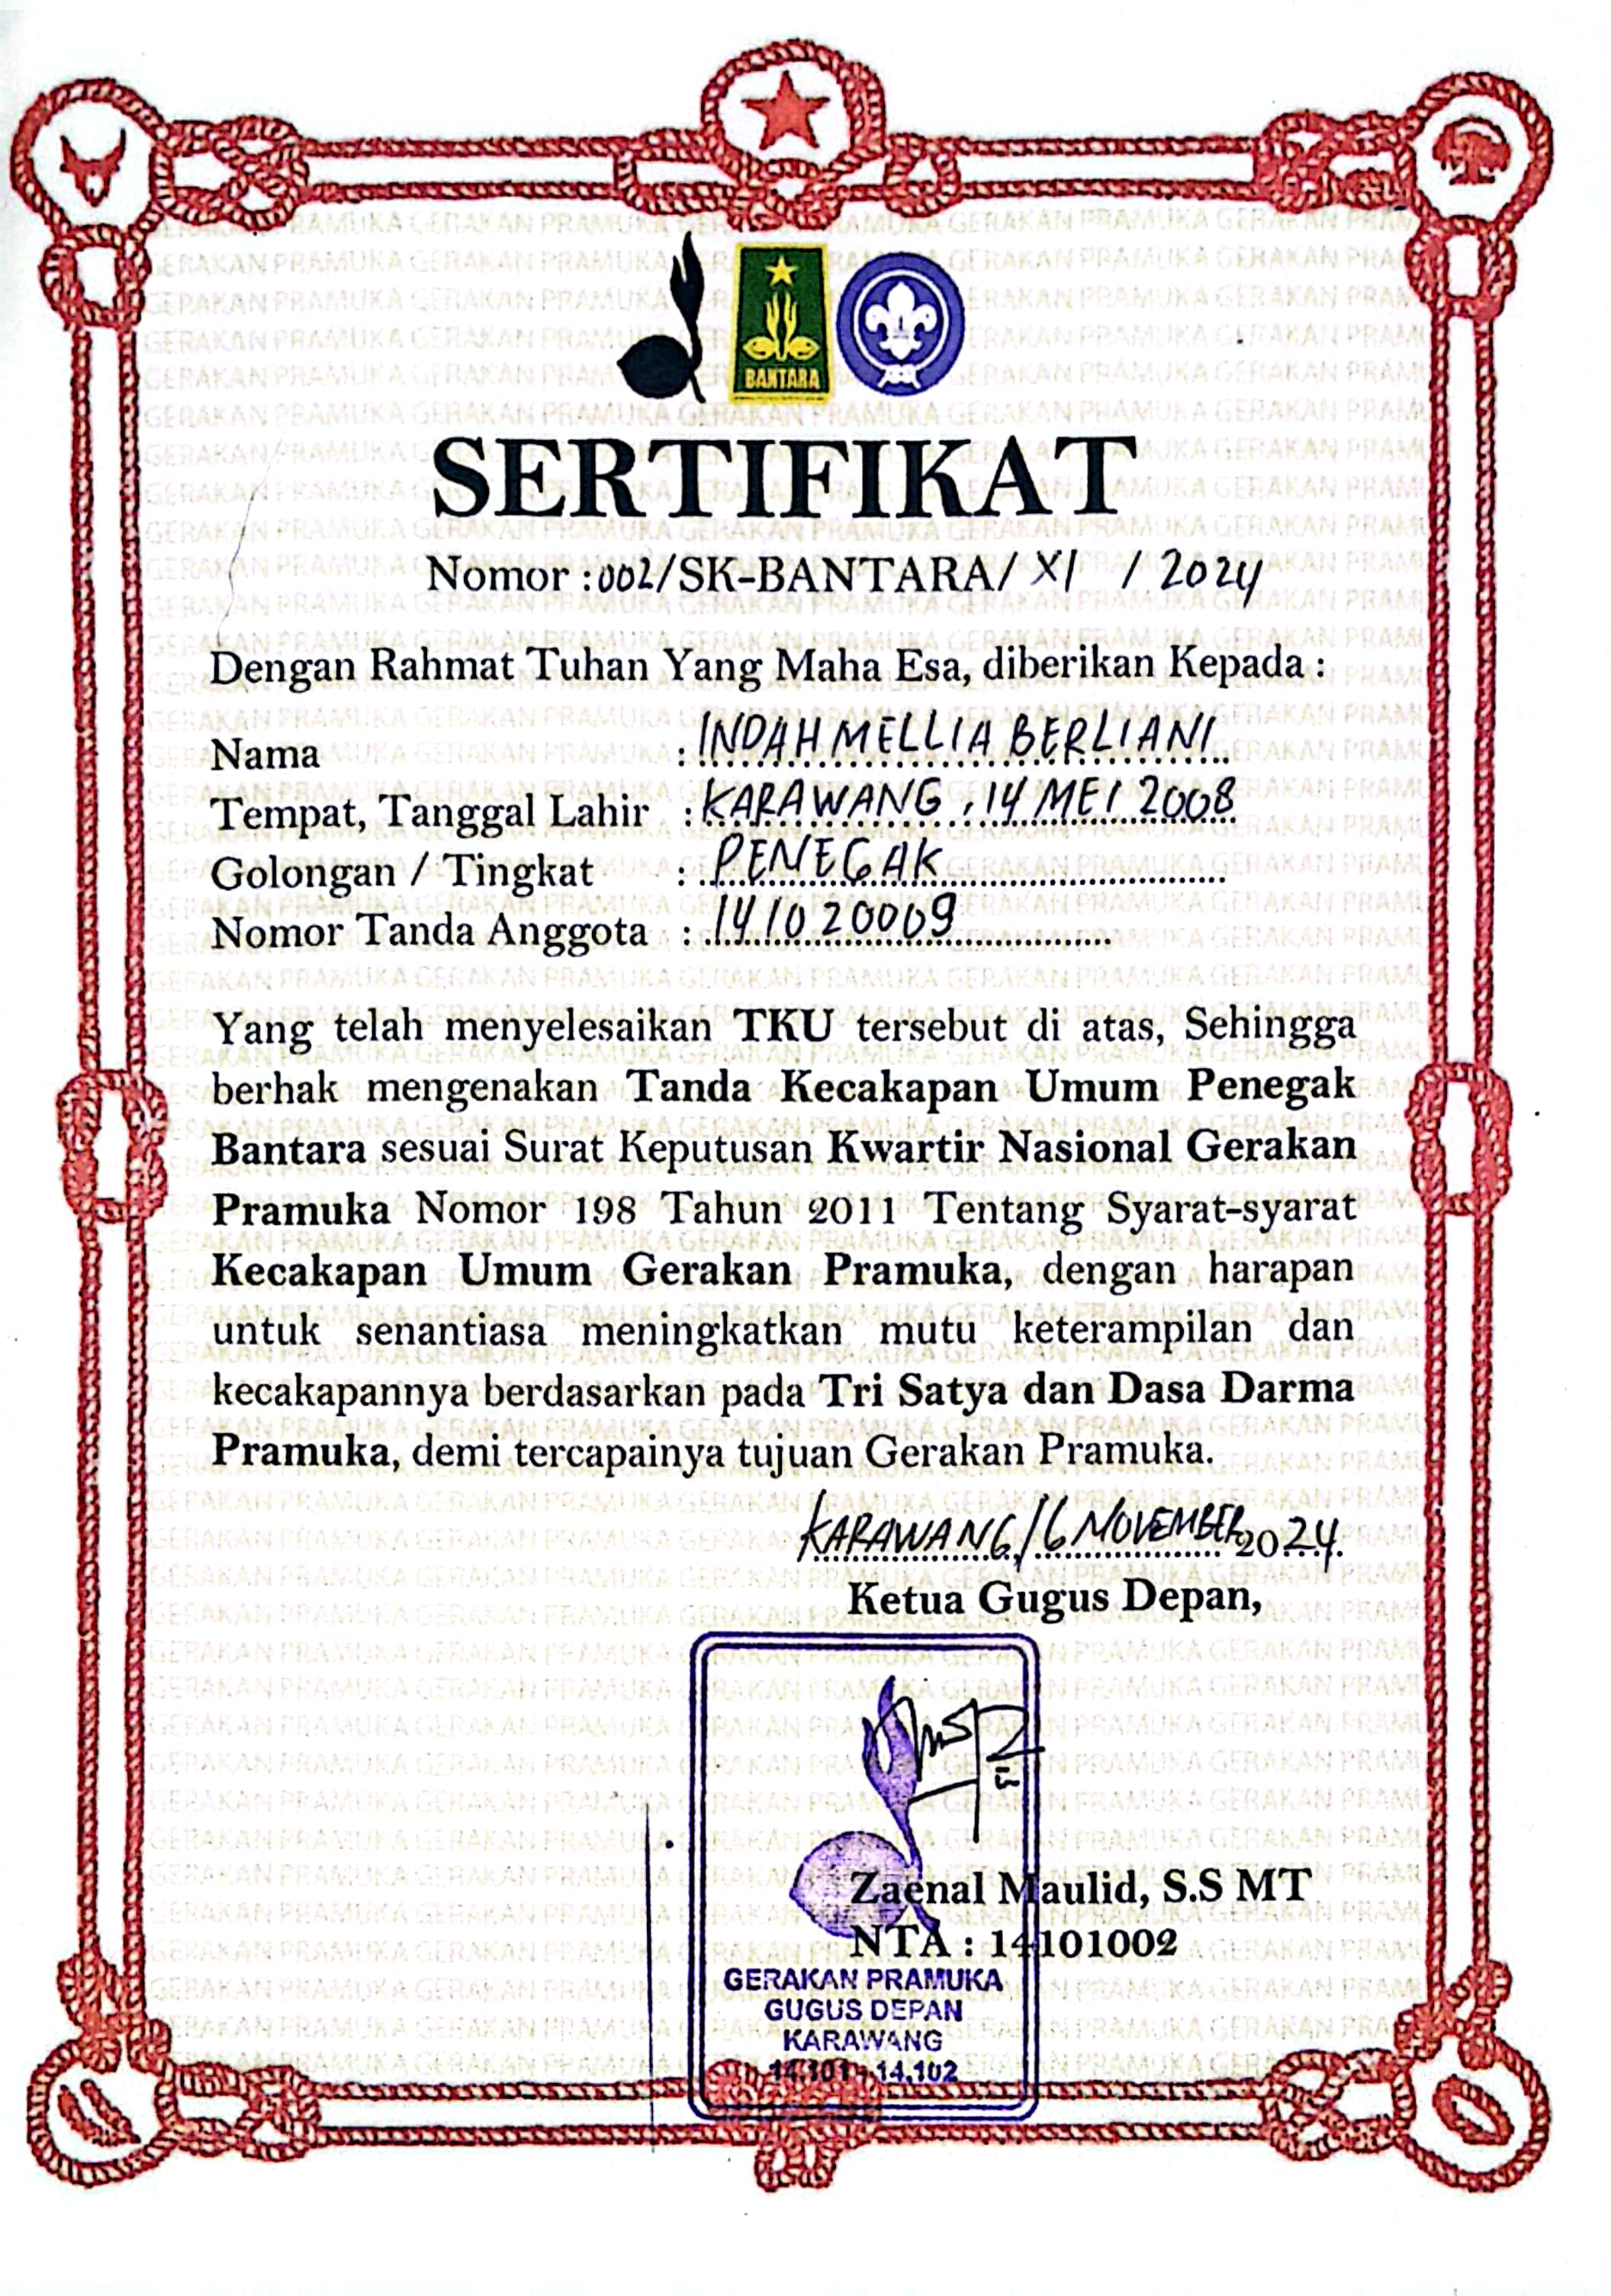 BANTARA
SERTIFIKAT
Nomor : 002/SK-BANTARA/ XI / 2024
Dengan Rahmat Tuhan Yang Maha Esa, diberikan Kepada :
Nama : INDAH MELLIA BERLIANI
Tempat, Tanggal Lahir : KARAWANG, 14 MEI 2008
Golongan / Tingkat : PENEGAK
Nomor Tanda Anggota : 141020009
Yang telah menyelesaikan TKU tersebut di atas, Sehingga
berhak mengenakan Tanda Kecakapan Umum Penegak
Bantara sesuai Surat Keputusan Kwartir Nasional Gerakan
Pramuka Nomor 198 Tahun 2011 Tentang Syarat-syarat
Kecakapan Umum Gerakan Pramuka, dengan harapan
untuk senantiasa meningkatkan mutu keterampilan dan
kecakapannya berdasarkan pada Tri Satya dan Dasa Darma
Pramuka, demi tercapainya tujuan Gerakan Pramuka.
KARAWANG, 16 NOVEMBER 2024.
Ketua Gugus Depan,
Zaenal Maulid, S.S MT
NTA : 14101002
GERAKAN PRAMUKA
GUGUS DEPAN
KARAWANG
14.101 - 14.102